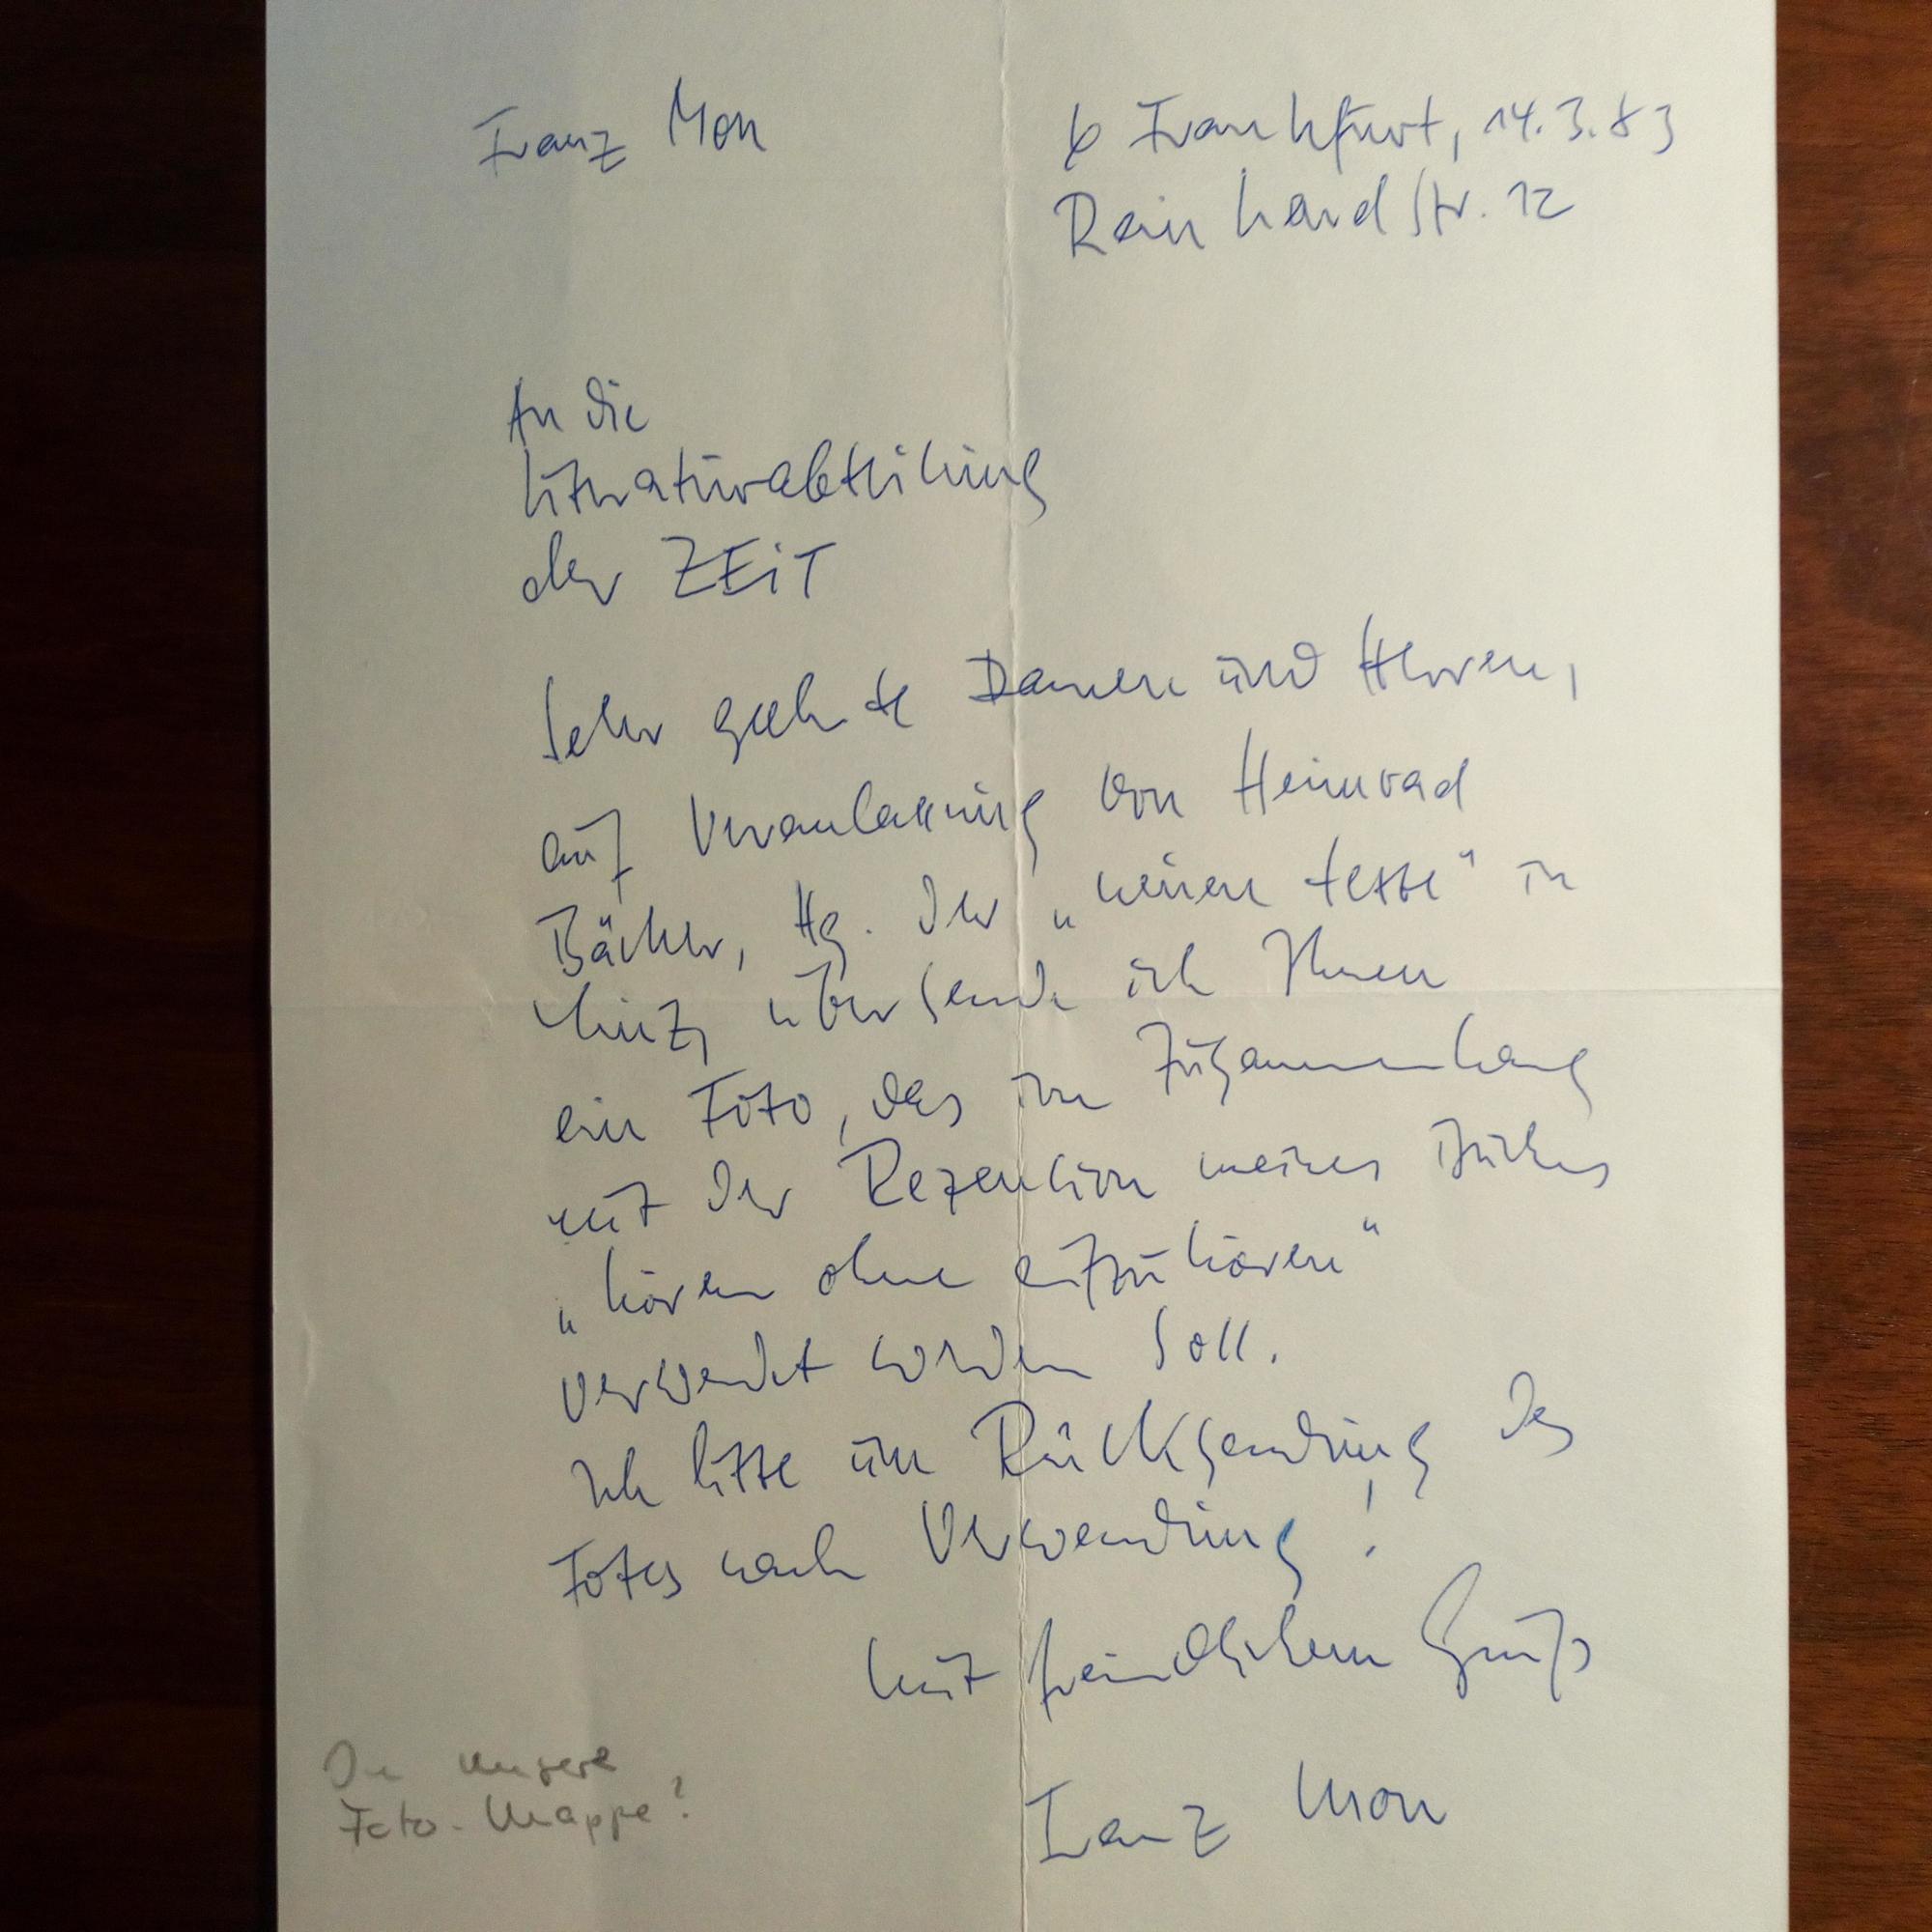 Franz Mon
6 Frankfurt, 14.3.83
Rainhardstr. 12
An die
Literaturabteilung
der ZEiT
Sehr geehrte Damen und Herren,
auf Veranlassung von Heimrad
Bäcker, Hg. der „neuen texte“ in
Linz, übersende ich Ihnen
ein Foto, das im Zusammenhang
mit der Rezension meines Buches
„hören ohne aufzuhören“
verwendet werden soll.
Ich bitte um Rücksendung des
Fotos nach Verwendung!
Mit freundlichem Gruß
Franz Mon
In unsere
Foto-Mappe!